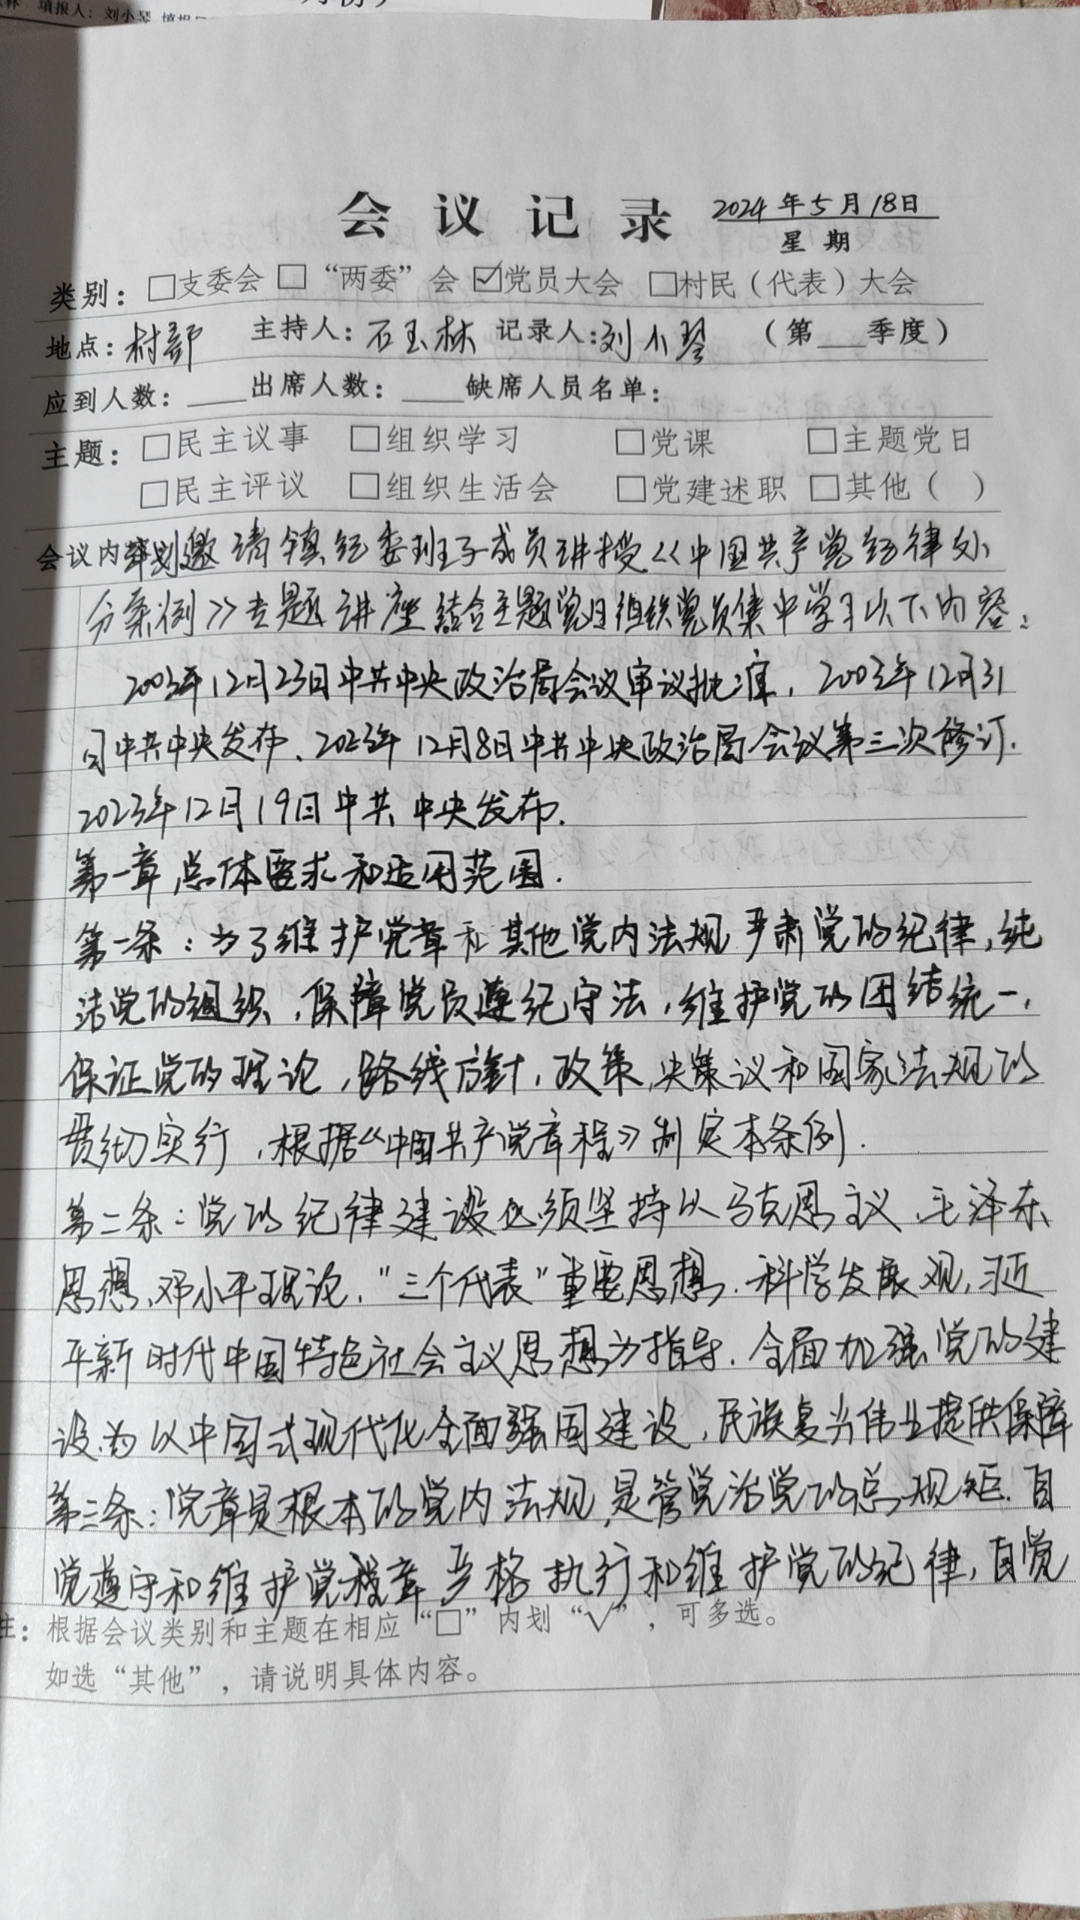 填报人：刘小琴
会议记录 2024年5月18日
星期
类别：□支委会 □“两委”会 ☑党员大会 □村民（代表）大会
地点：村部 主持人：石玉林 记录人：刘小琴 （第___季度）
应到人数：____出席人数：____缺席人员名单：
主题：□民主议事 □组织学习 □党课 □主题党日
□民主评议 □组织生活会 □党建述职 □其他（ ）
会议内容 邀请镇纪委班子成员讲授《中国共产党纪律处
分条例》专题讲座结合主题党日组织党员集中学习以下内容：
2003年12月23日中共中央政治局会议审议批准，2003年12月31
日中共中央发布、2023年12月8日中共中央政治局会议第三次修订.
2023年12月19日中共中央发布.
第一章 总体要求和适用范围.
第一条：为了维护党章和其他党内法规严肃党的纪律，纯
洁党的组织，保障党员遵纪守法，维护党的团结统一，
保证党的理论，路线方针，政策、决策议和国家法规的
贯彻实行，根据《中国共产党章程》制定本条例.
第二条：党的纪律建设必须坚持以马克思主义、毛泽东
思想、邓小平理论，“三个代表”重要思想.科学发展观，习近
平新时代中国特色社会主义思想为指导.全面加强党的建
设、为以中国式现代化全面强国建设，民族复兴伟业提供保障
第三条：党章是根本的党内法规，是管党治党的总规矩.自
党遵守和维护党章，严格执行和维护党的纪律，自觉
注：根据会议类别和主题在相应“□”内划“√”，可多选。
如选“其他”，请说明具体内容。